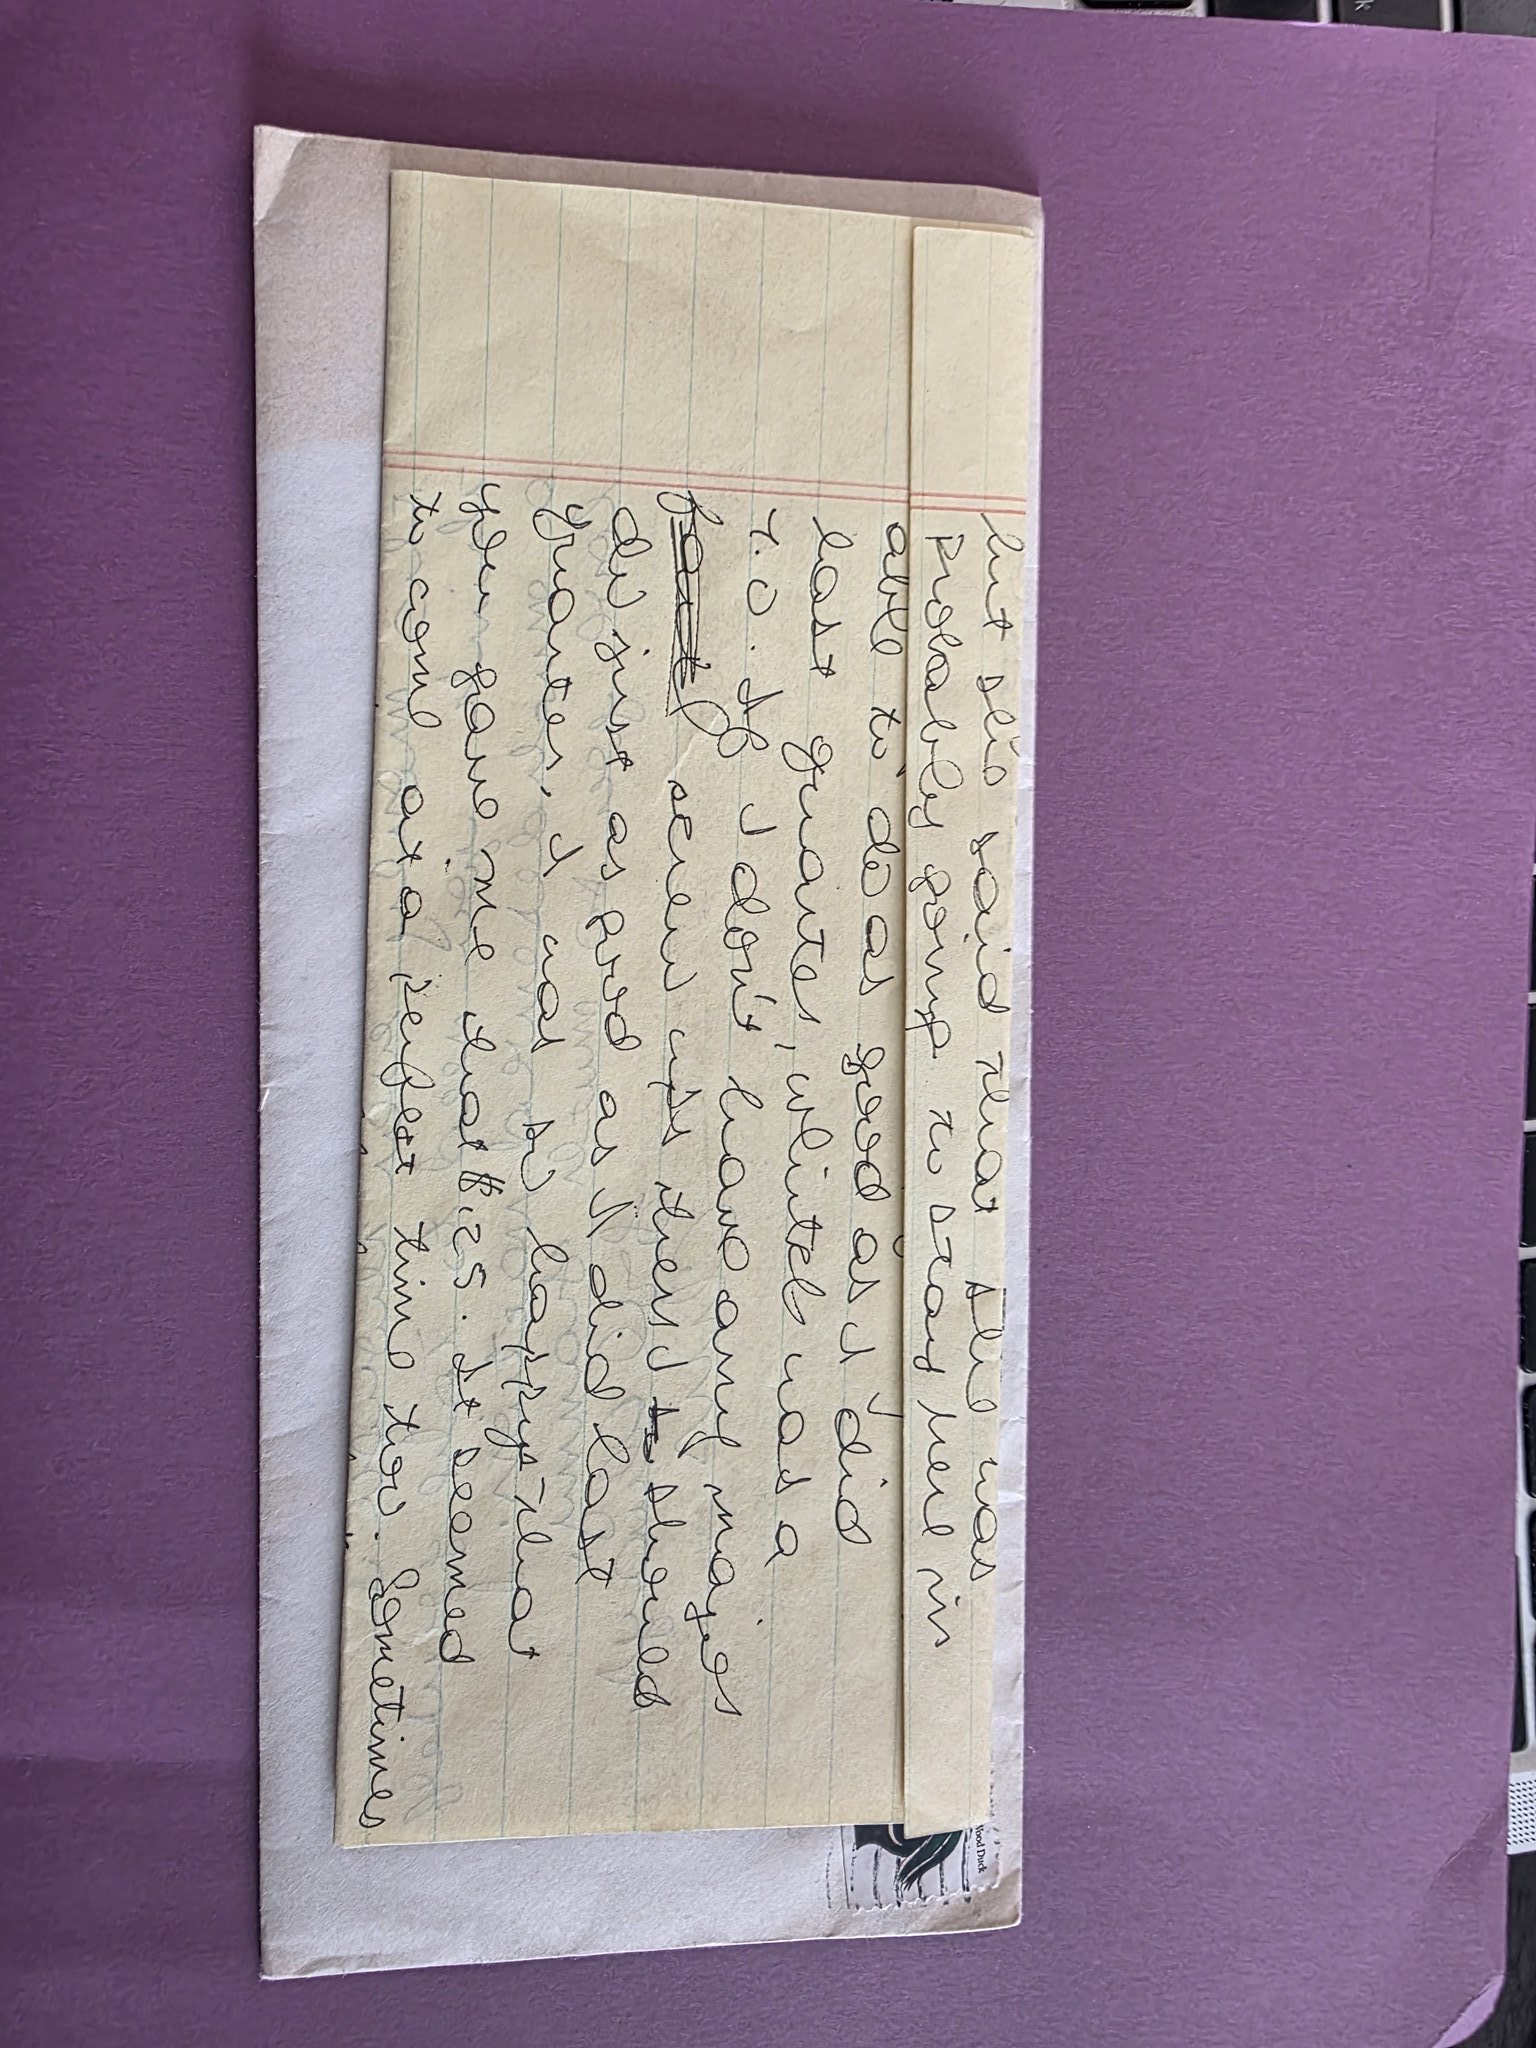 but she said that she was
probably going to stay here in
able to do as good as I did
last quarter, which was a
4.0. If I don't have any major
screw ups then I should
do just as good as I did last
quarter. I was so happy that
you gave me that $25. It seemed
to come at a perfect time too. Sometimes
Wood Duck